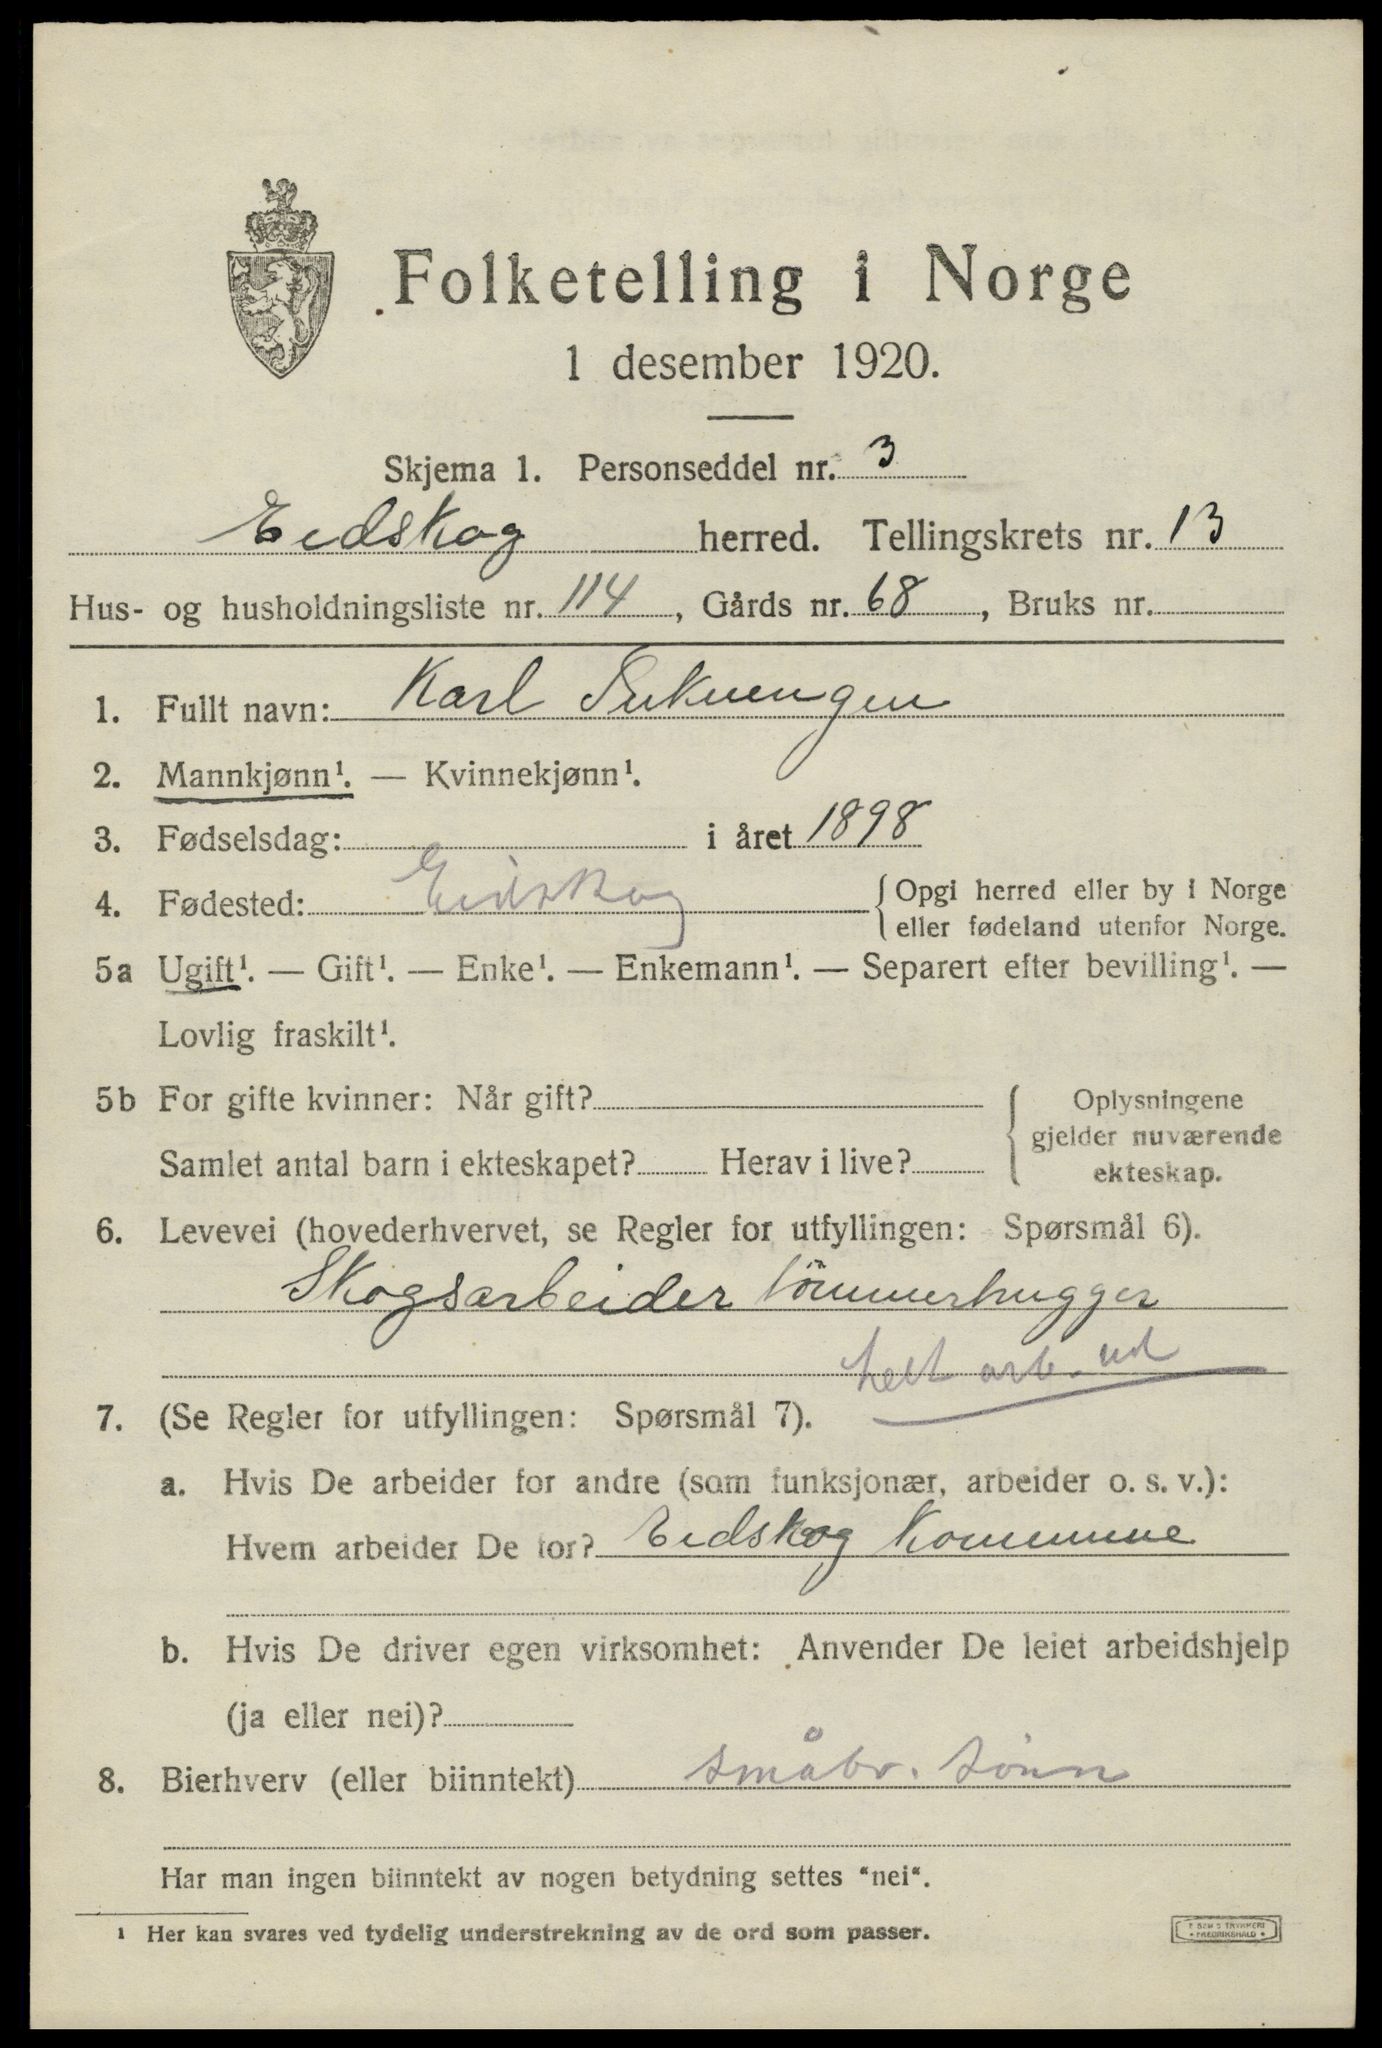 Folketelling i Norge
1 desember 1920.
Skjema 1. Personseddel nr. 3
Eidskog herred. Tellingskrets nr. 13
Hus- og husholdningsliste nr. 114, Gårds nr. 68, Bruks nr.
1. Fullt navn: Karl
2. Mannkjønn¹. — Kvinnekjønn¹.
3. Fødselsdag: i året 1898
4. Fødested: Eidskog {Opgi herred eller by i Norge
eller fødeland utenfor Norge.
5a Ugift¹. — Gift¹. — Enke¹. — Enkemann¹. — Separert efter bevilling¹. —
Lovlig fraskilt¹.
5b For gifte kvinner: Når gift? Oplysningene
gjelder nuværende
Samlet antal barn i ekteskapet? Herav i live? ekteskap.
6. Levevei (hovederhvervet, se Regler for utfyllingen: Spørsmål 6).
Skogsarbeider tömmerhugger
helt arb. ud
7. (Se Regler for utfyllingen: Spørsmål 7).
a. Hvis De arbeider for andre (som funksjonær, arbeider o. s. v.):
Hvem arbeider De for? Eidskog Kommune
b. Hvis De driver egen virksomhet: Anvender De leiet arbeidshjelp
(ja eller nei)?
8. Bierhverv (eller biinntekt) småbr. sönn
Har man ingen biinntekt av nogen betydning settes “nei“.
¹ Her kan svares ved tydelig understrekning av de ord som passer.
TRYKKERI
FREDRIKSHALD